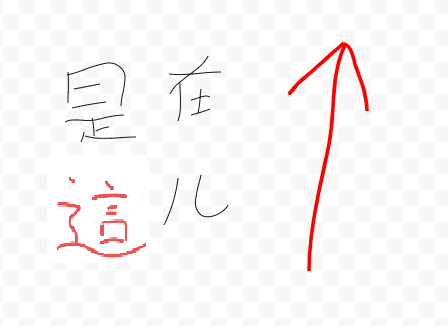 是在
這儿